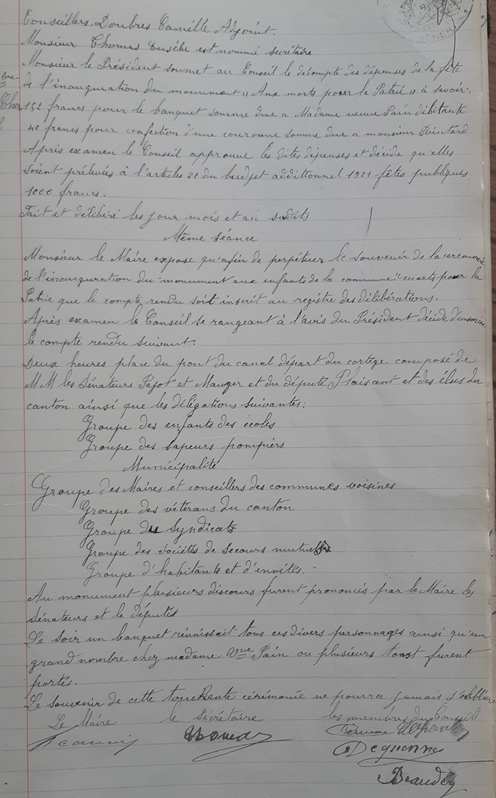 Conseillers Doubres Camille Adjoint.
Monsieur Thomas Eusèbe est nommé secrétaire
Monsieur le Président soumet au Conseil le décompte des dépenses de la fête
de l'inauguration du monument "Aux morts pour la Patrie" à savoir:
152 francs pour le banquet somme due a Madame veuve Pain débitante
40 francs pour confection d'une couronne somme due a monsieur
Après examen le Conseil approuve les dites dépenses et décide qu'elles
soient prélevées à l'article 21 du budget additionnel 1921 fêtes publiques
1000 francs.
Fait et délibéré les jour mois et an susdits
Même séance
Monsieur le Maire expose qu'afin de perpétuer le souvenir de la cérémonie
de l'inauguration du monument aux enfants de la commune morts pour la
Patrie que le compte rendu soit inscrit au registre des délibérations.
Après examen le Conseil se rangeant à l'avis du Président décide d'
le compte rendu suivant:
Deux heures place du pont du canal départ du cortège composé de
M.M les Sénateurs Pajot et Mauger et du député Plaisant et des élus du
canton ainsi que les délégations suivantes:
Groupe des enfants des écoles
Groupe des sapeurs pompiers
Municipalité
Groupe des Maires et conseillers des communes voisines
Groupe des vétérans du canton
Groupe du Syndicats
Groupe des sociétés de secours mutuels
Groupe d'habitants et d'invités. -
Au monument plusieurs discours furent prononcés par le Maire les
Sénateurs et le Députés
Le soir un banquet réunissait tous ces divers personnages ainsi qu'un
grand nombre chez madame Vve Pain ou plusieurs toast furent
portés.
Le souvenir de cette touchante cérémonie ne pourra jamais s'
Le Maire le secrétaire les membres du Conseil
Thomas
Deguenne